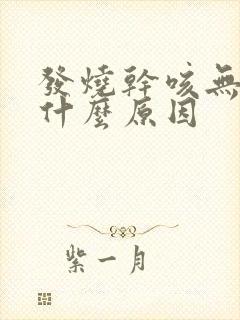 發燒幹咳無
什麼原因
紫一月